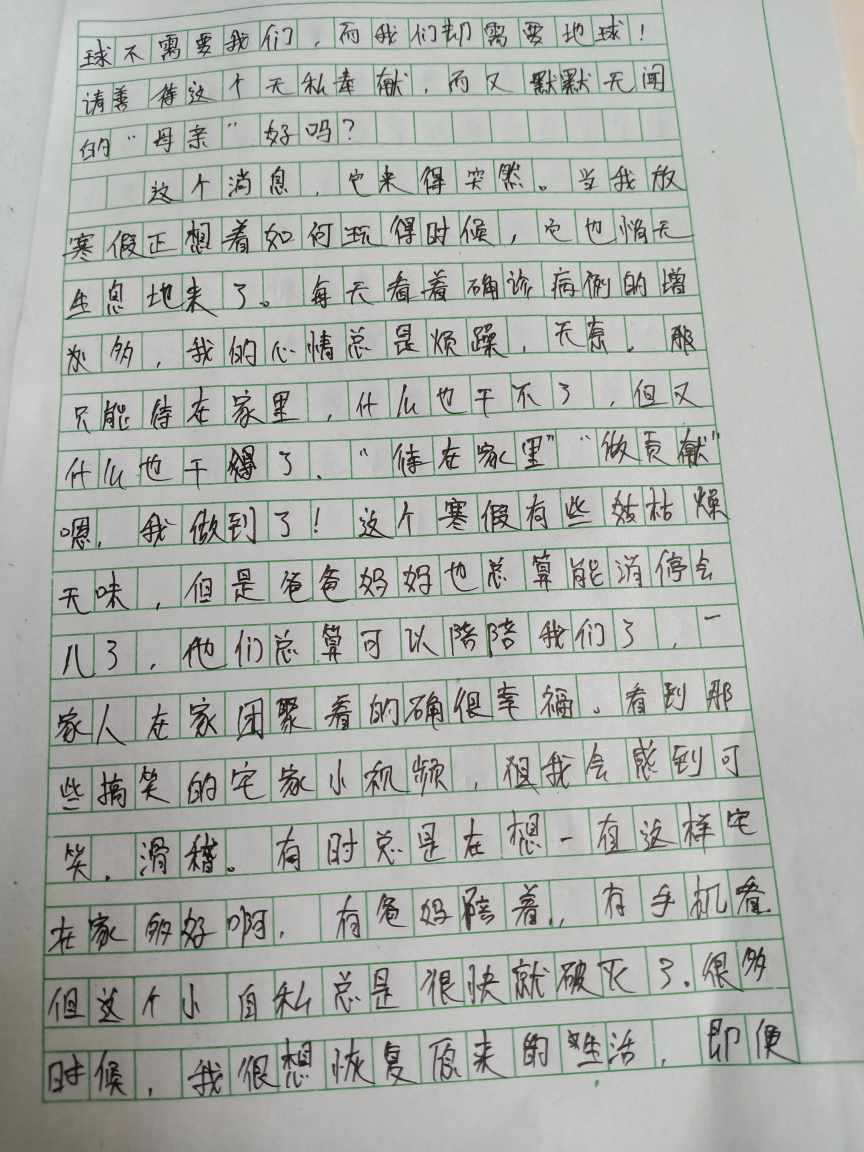 球不需要我们，而我们却需要地球！
请善待这个无私奉献，而又默默无闻
的“母亲”好吗？
这个消息，它来得突然。当我放
寒假正想着如何玩得时候，它也悄无
生息地来了。每天看着确诊病例的增
多，我的心情总是烦躁，无奈。那
只能待在家里，什么也干不了，但又
什么也干得了、“待在家里”“做贡献”
嗯，我做到了！这个寒假有些枯燥
无味，但是爸爸妈妈也总算能消停会
儿了，他们总算可以陪陪我们了，一
家人在家团聚着的确很幸福。看到那
些搞笑的宅家小视频，我会感到可
笑，滑稽。有时总是在想一直这样宅
在家多好啊，有爸妈陪着，有手机看.
但这个小自私总是很快就破灭了.很多
时候，我很想恢复原来的生活，即便